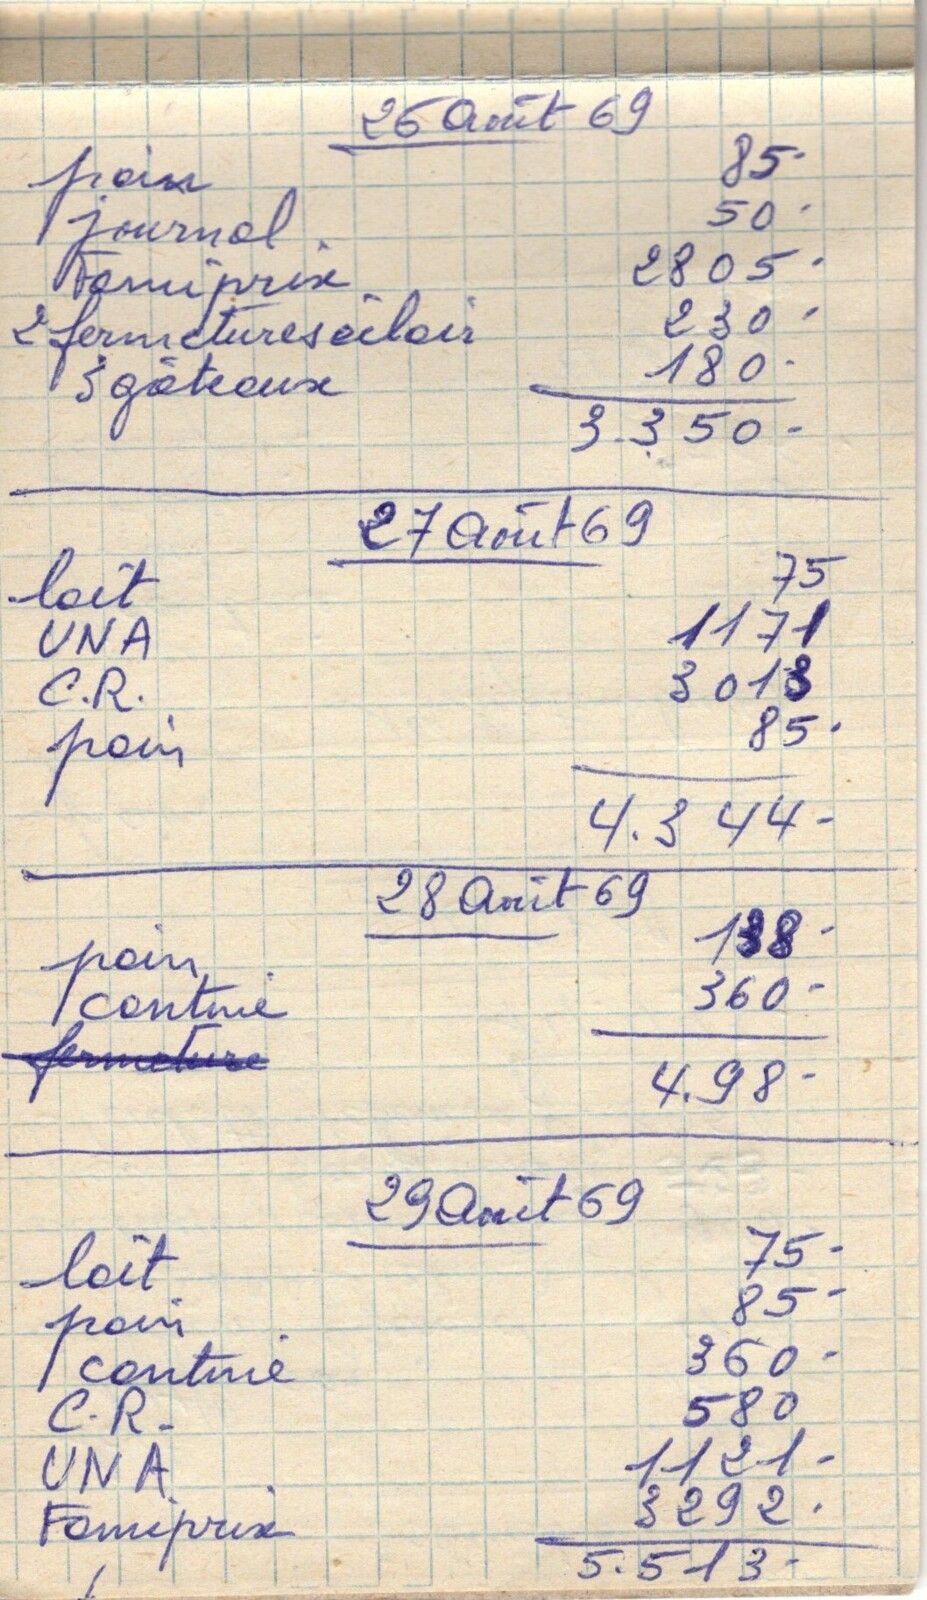 26 Août 69
pain 85-
journal 50-
Famiprix 2805-
2 fermetures éclair 230-
3 gâteaux 180-
3.350-
27 Août 69
lait 75
UNA 1171
C.R. 3013
pain 85-
4.344-
28 Août 69
pain 138-
cantine 360-
fermeture
4.98-
29 Août 69
lait 75-
pain 85-
cantine 360-
C.R. 580
UNA 1121-
Famiprix 3292-
5.513-